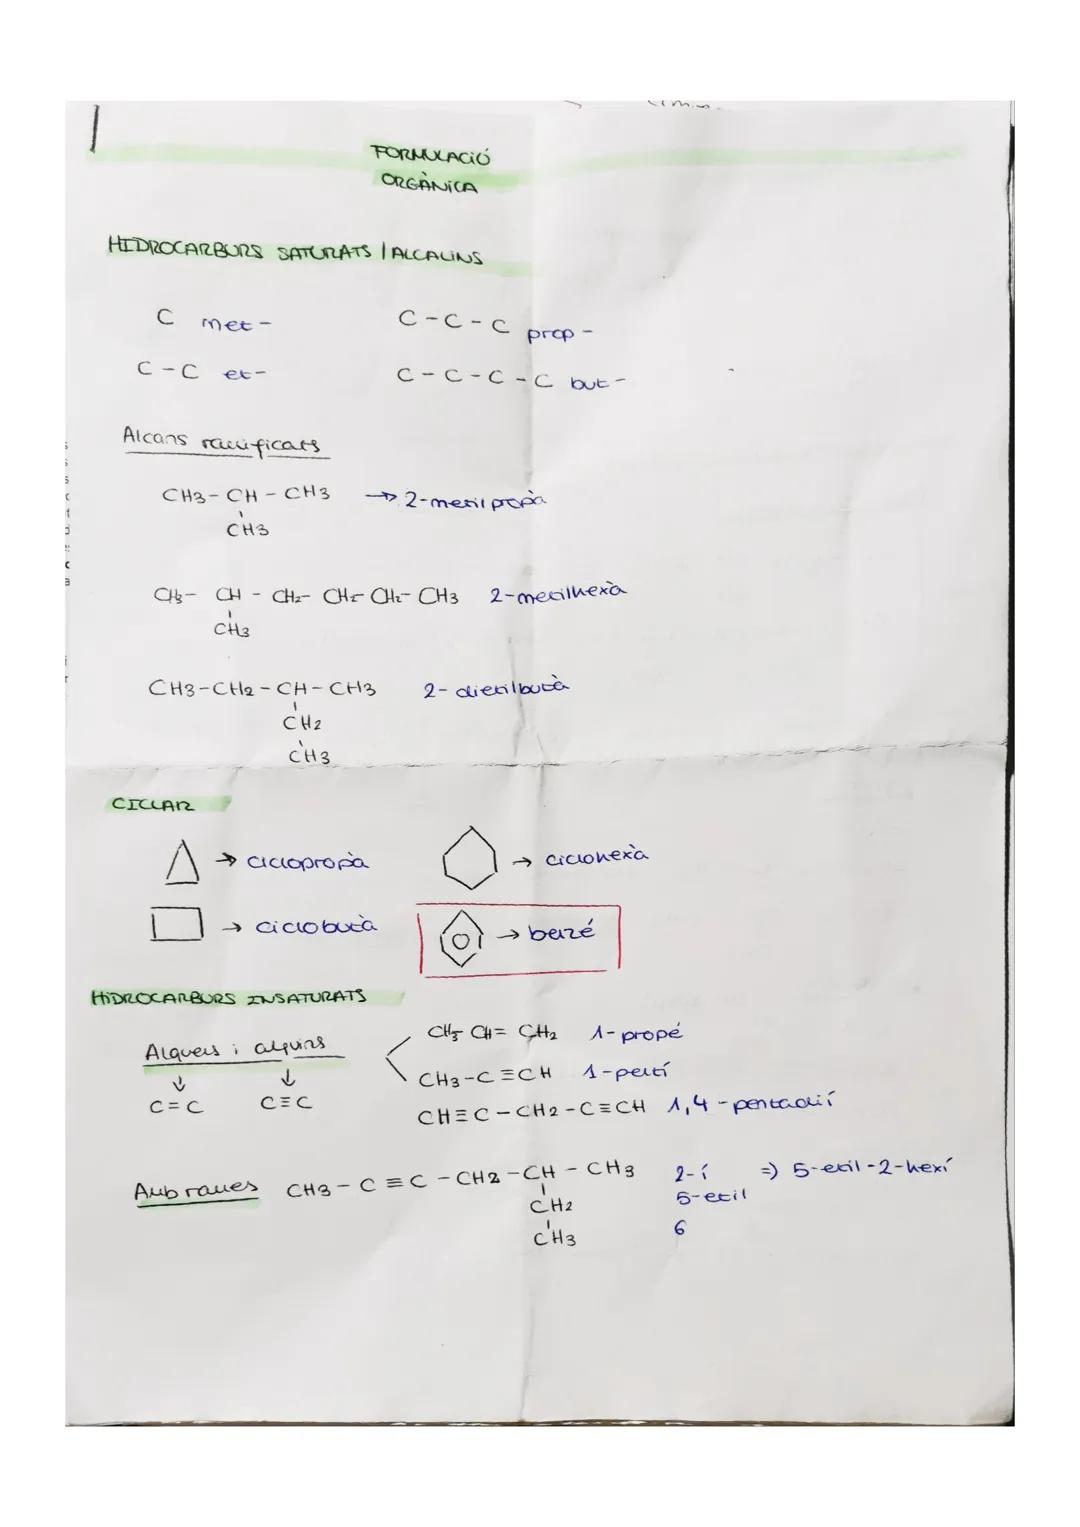 FORMULACIÓ
ORGÀNICA
HIDROCARBURS SATURATS / ALCALINS
C met- C-C-C prop-
C-C et- C-C-C-C but-
Alcans ramificats
CH3-CH-CH3 → 2-metilpropà
CH3
CH3-CH-CH2-CH2-CH2-CH3 2-metilhexà
CH3
CH3-CH2-CH-CH3 2-dietilbutà
CH2
CH3
CICLAR
→ ciclopropà → ciclohexà
→ ciclobutà → benzé
HIDROCARBURS INSATURATS
Alquens i alquins
↓ ↓
C=C C≡C
CH3-CH=CH2 1-propé
CH3-C≡CH 1-pentí
CH≡C-CH2-C≡CH 1,4-pentadií
Amb rames CH3-C≡C-CH2-CH-CH3 2-í ⇒ 5-etil-2-hexí
CH2 5-etil
CH3 6